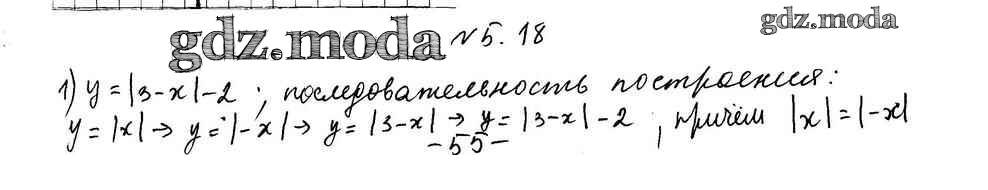 gdz.moda
gdz.moda №5.18
1) y = |3-x|-2 ; последовательность построения:
y = |x| → y = |-x| → y = |3-x| → y = |3-x| - 2 , причём |x| = |-x|
-55-